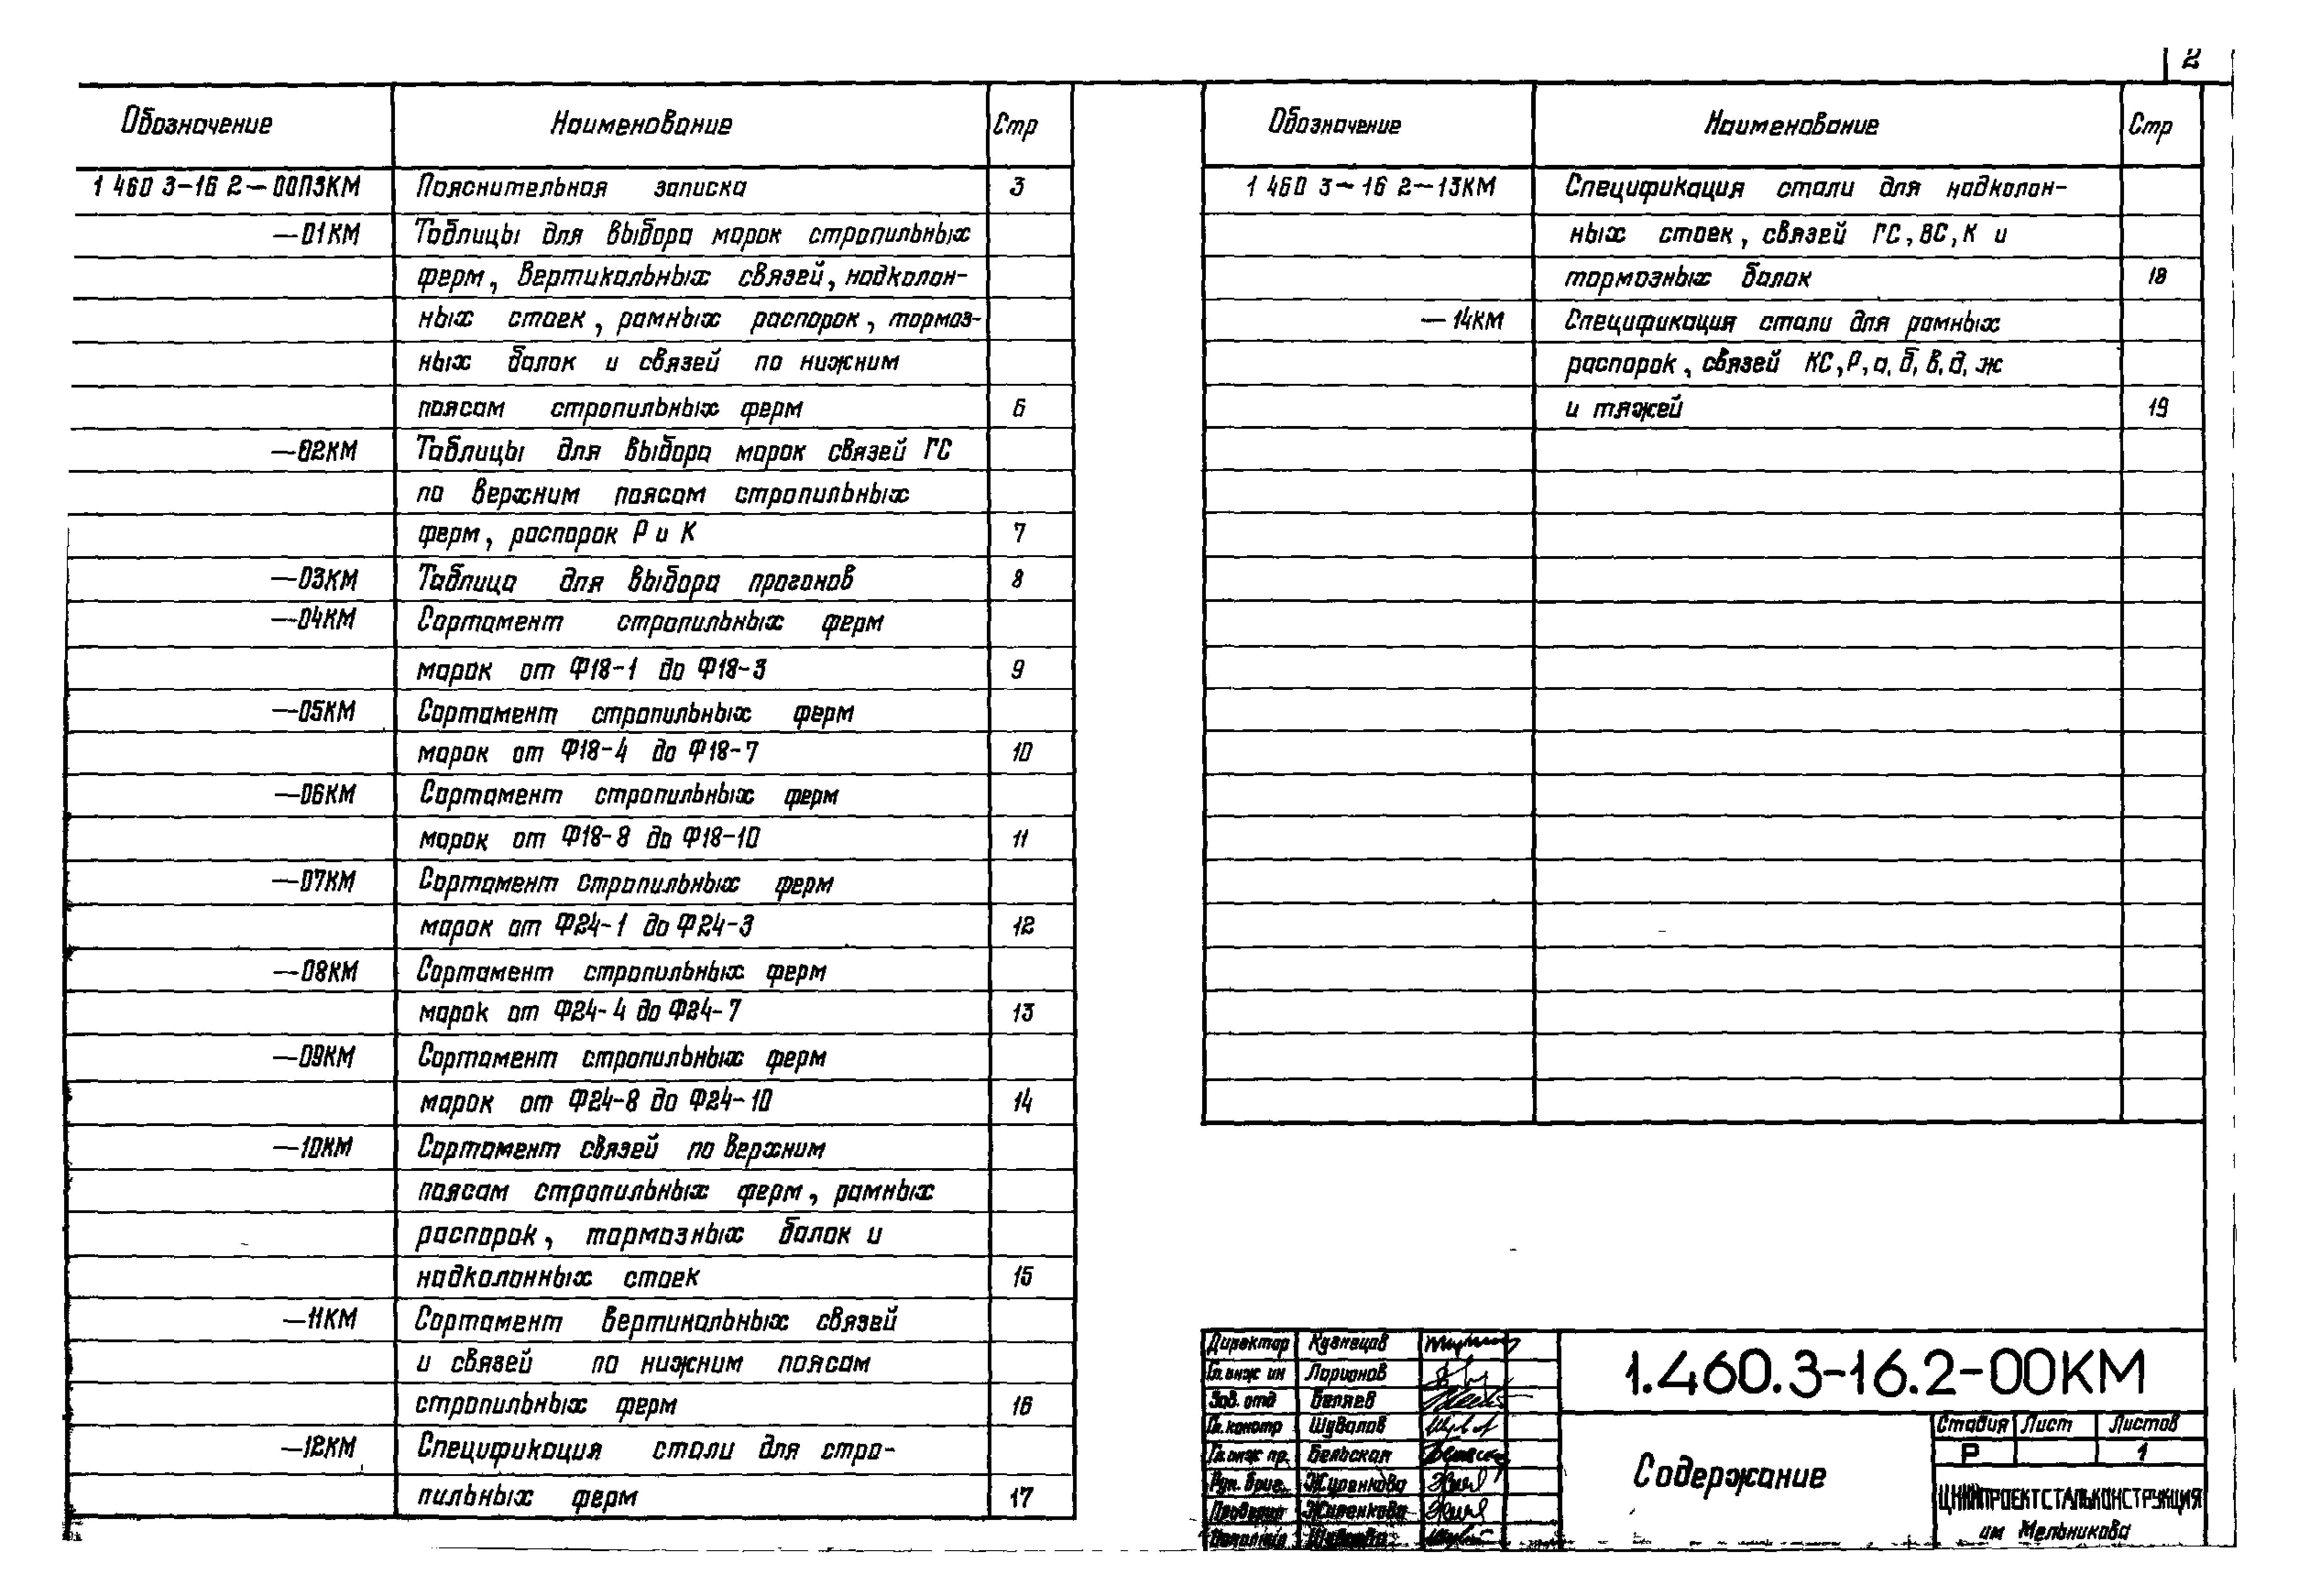 2
Обозначение Наименование Стр
1 460 3-16 2-00ПЗКМ Пояснительная записка 3
-01КМ Таблицы для выбора марок стропильных
ферм, вертикальных связей, надколон-
ных стоек, рамных распорок, тормоз-
ных балок и связей по нижним
поясам стропильных ферм 6
-02КМ Таблицы для выбора марок связей ГС
по верхним поясам стропильных
ферм, распорок Р и К 7
-03КМ Таблица для выбора прогонов 8
-04КМ Сортамент стропильных ферм
марок от Ф18-1 до Ф18-3 9
-05КМ Сортамент стропильных ферм
марок от Ф18-4 до Ф18-7 10
-06КМ Сортамент стропильных ферм
марок от Ф18-8 до Ф18-10 11
-07КМ Сортамент стропильных ферм
марок от Ф24-1 до Ф24-3 12
-08КМ Сортамент стропильных ферм
марок от Ф24-4 до Ф24-7 13
-09КМ Сортамент стропильных ферм
марок от Ф24-8 до Ф24-10 14
-10КМ Сортамент связей по верхним
поясам стропильных ферм, рамных
распорок, тормозных балок и
надколонных стоек 15
-11КМ Сортамент вертикальных связей
и связей по нижним поясам
стропильных ферм 16
-12КМ Спецификация стали для стро-
пильных ферм 17
Обозначение Наименование Стр
1 460 3-16 2-13КМ Спецификация стали для надколон-
ных стоек, связей ГС, ВС, К и
тормозных балок 18
-14КМ Спецификация стали для рамных
распорок, связей КС, Р, а, б, в, д, ж
и тяжей 19
Директор Кузнецов
Гл. инж ин Ларионов
Зав. отд Беляев
Гл. констр Шувалов
Гл. инж пр. Бельская
Рук. бриг. Жиренкова
Проверил Жиренкова
Исполнил
1.460.3-16.2-00КМ
Содержание
Стадия Лист Листов
Р 1
ЦНИИПРОЕКТСТАЛЬКОНСТРУКЦИЯ
им Мельникова